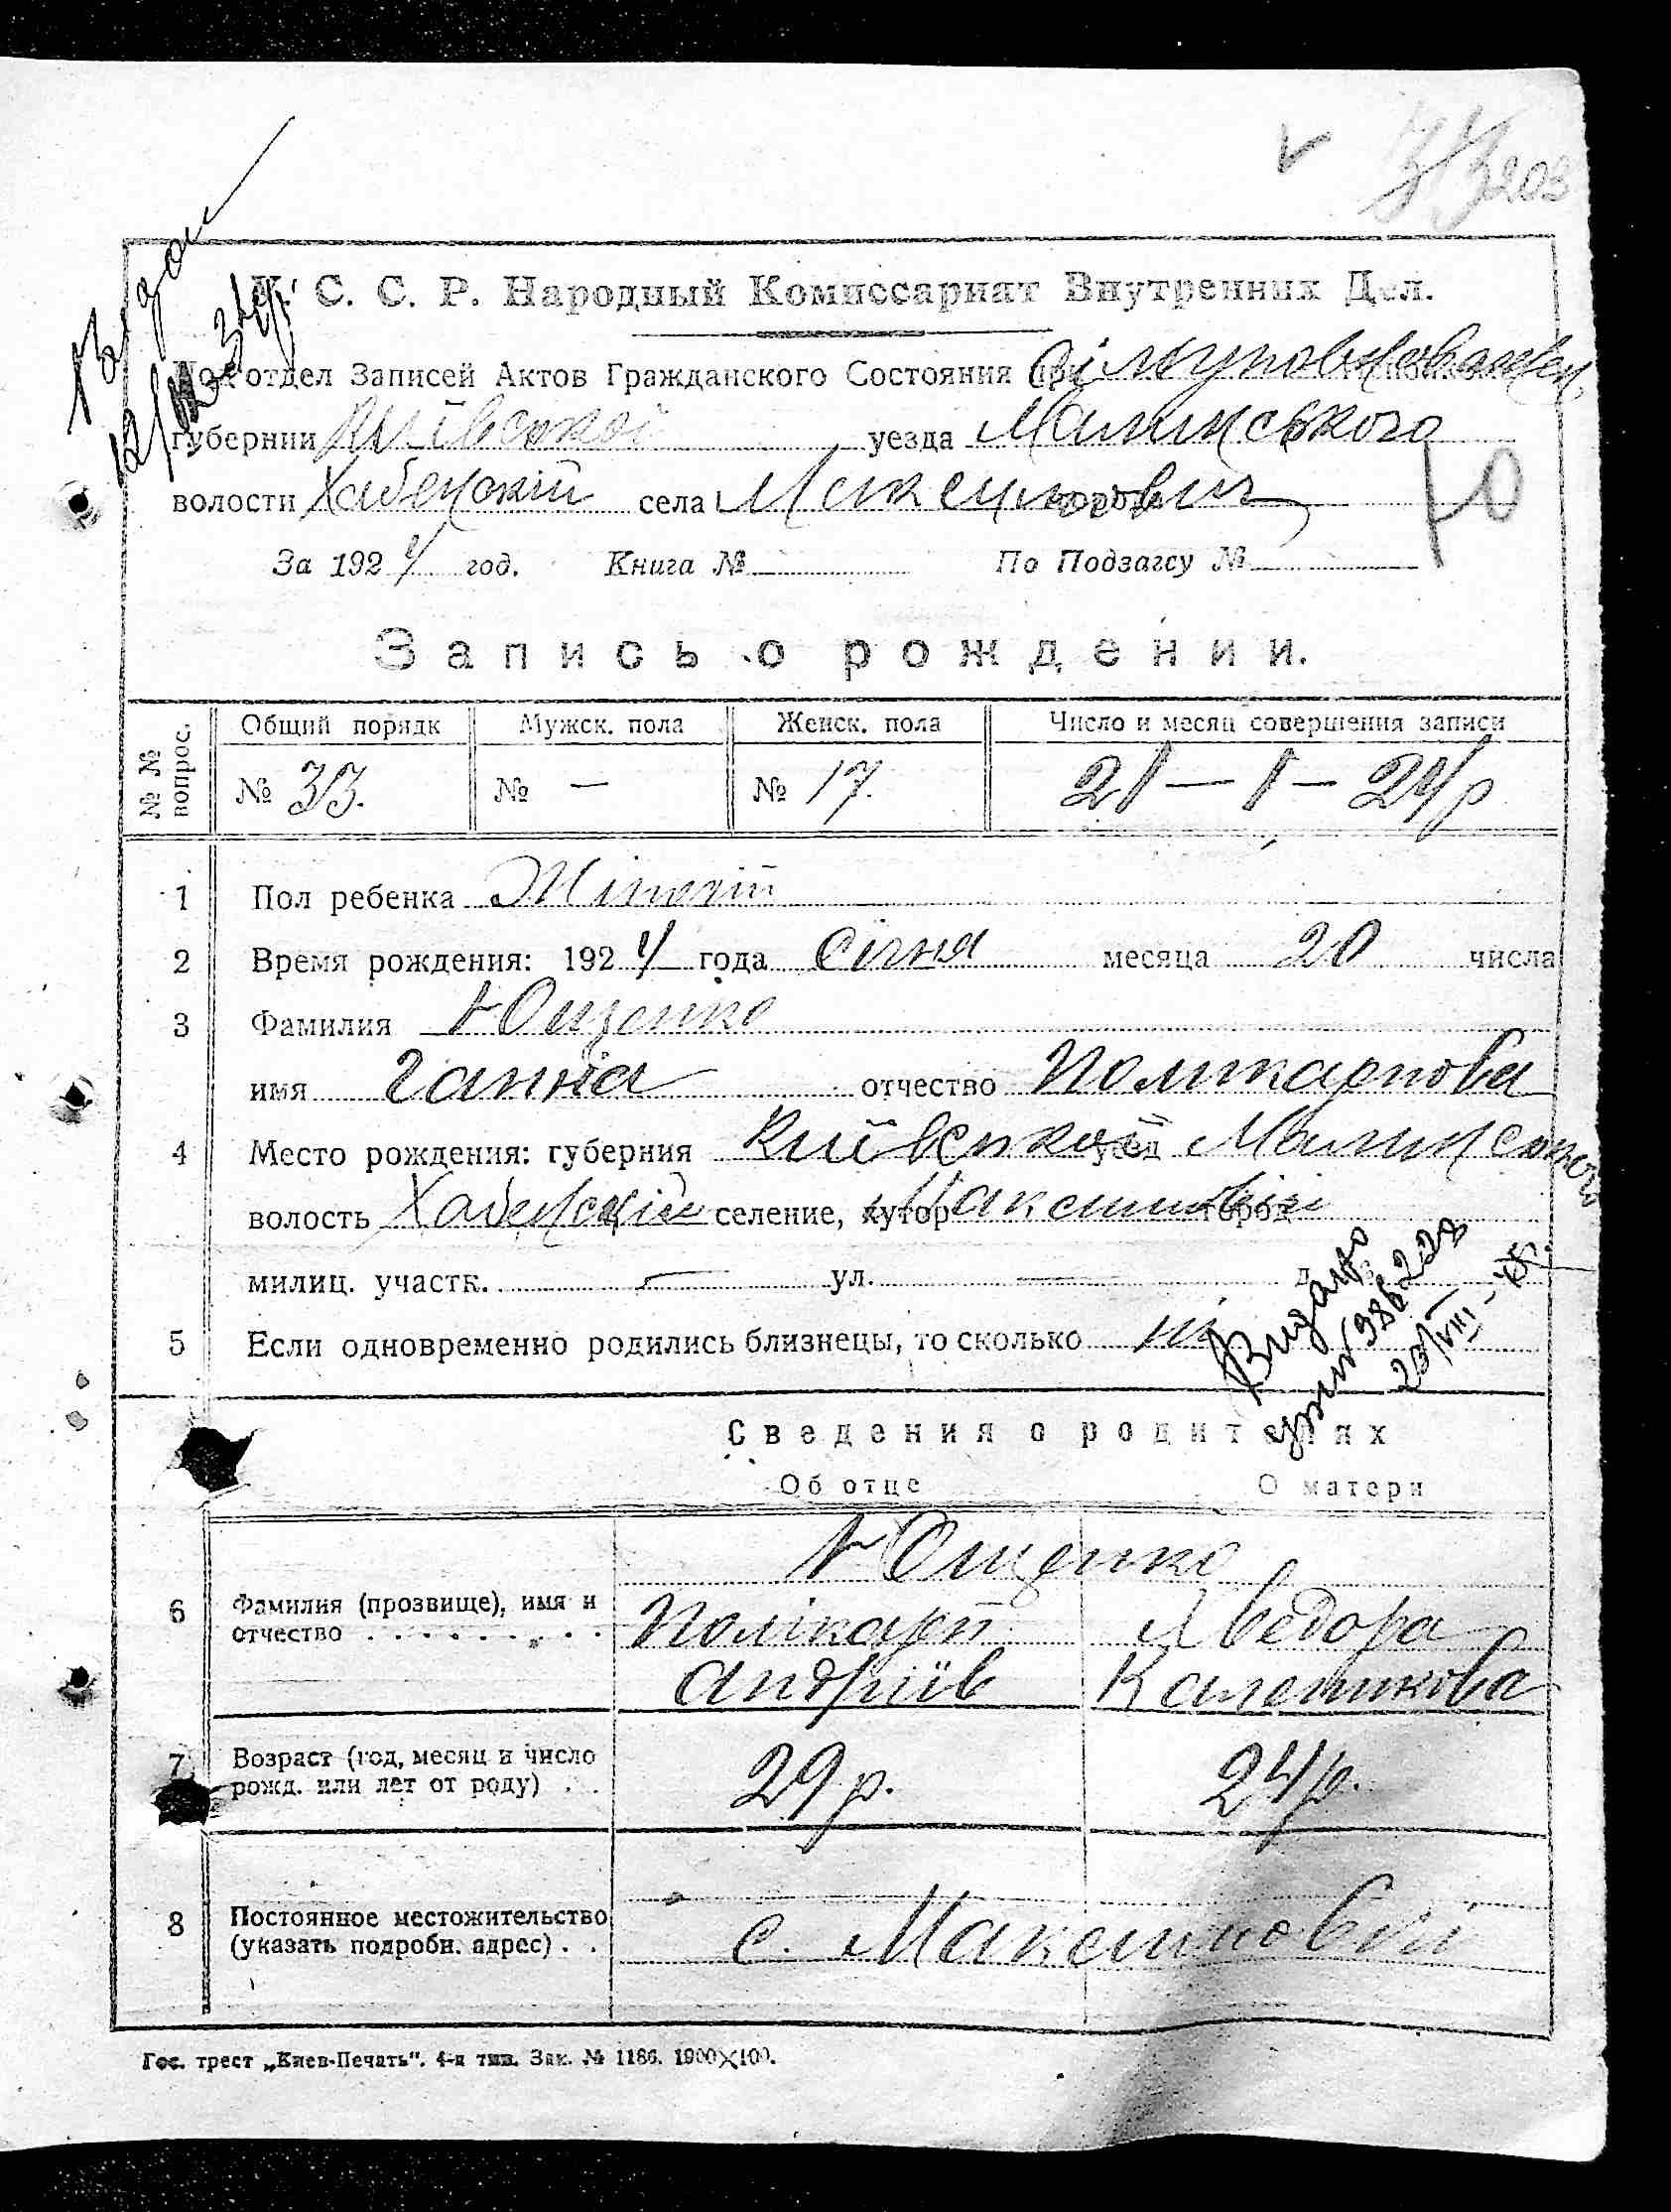 33 203
У. С. С. Р. Народный Комиссариат Внутренних Дел.
Подотдел Записей Актов Гражданского Состояния при
губернии Київської уезда Малинського
волости Хабенський села Максимович
Ю
За 1924 год. Книга № По Подзагсу №
Запись о рождении.
№ № вопрос. Общий порядк Мужск. пола Женск. пола Число и месяц совершения записи
№ 33. № — № 17. 21 — 1 — 24 р
1 Пол ребенка Жіночий
2 Время рождения: 1924 года Січня месяца 20 числа
3 Фамилия Ющенко
имя Ганна отчество Поликарпова
4 Место рождения: губерния Київської уезд Малинського
волость Хабенський селение, хутор Максимовичі город
милиц. участк. — ул. — д.
5 Если одновременно родились близнецы, то сколько ні
Видано
986228
23/VIII-45.
Сведения о родителях
Об отце О матери
Ющенко
6 Фамилия (прозвище), имя и Полікарп Яведора
отчество Андріїв Каленикова
7 Возраст (год, месяц и число 29 р. 24 р.
рожд. или лет от роду)
8 Постоянное местожительство с. Максимовичі
(указать подробн. адрес)
Гос. трест „Киев-Печать". 4-я тип. Зак. № 1186. 1900×100.